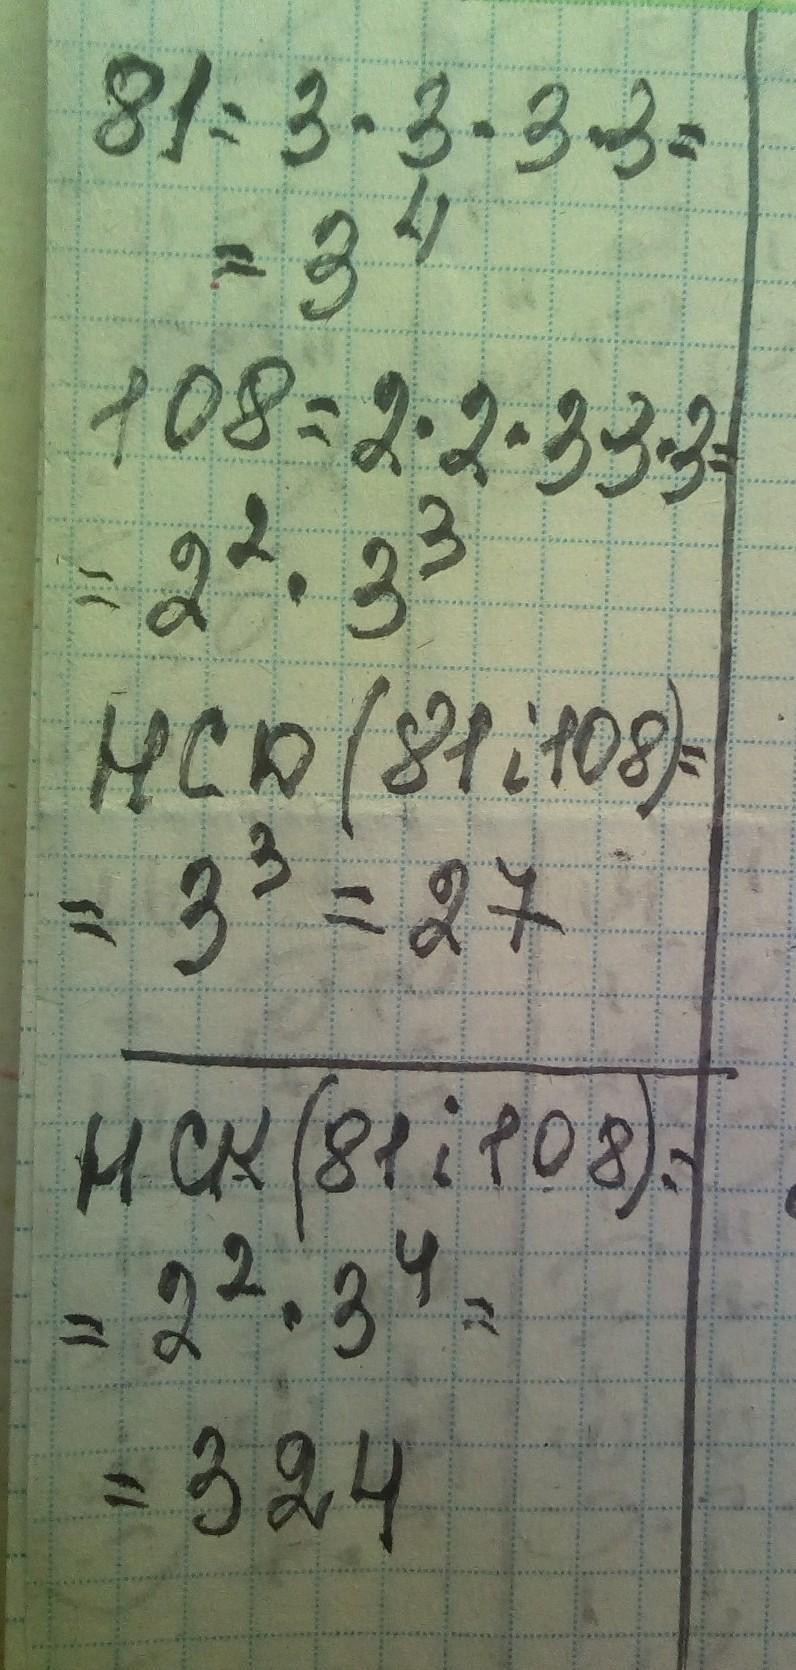 81 = 3 · 3 · 3 · 3 =
= 3⁴
108 = 2 · 2 · 3 3 · 3 =
= 2² · 3³
НСД (81 і 108) =
= 3³ = 27
НСК (81 і 108) =
= 2² · 3⁴ =
= 324